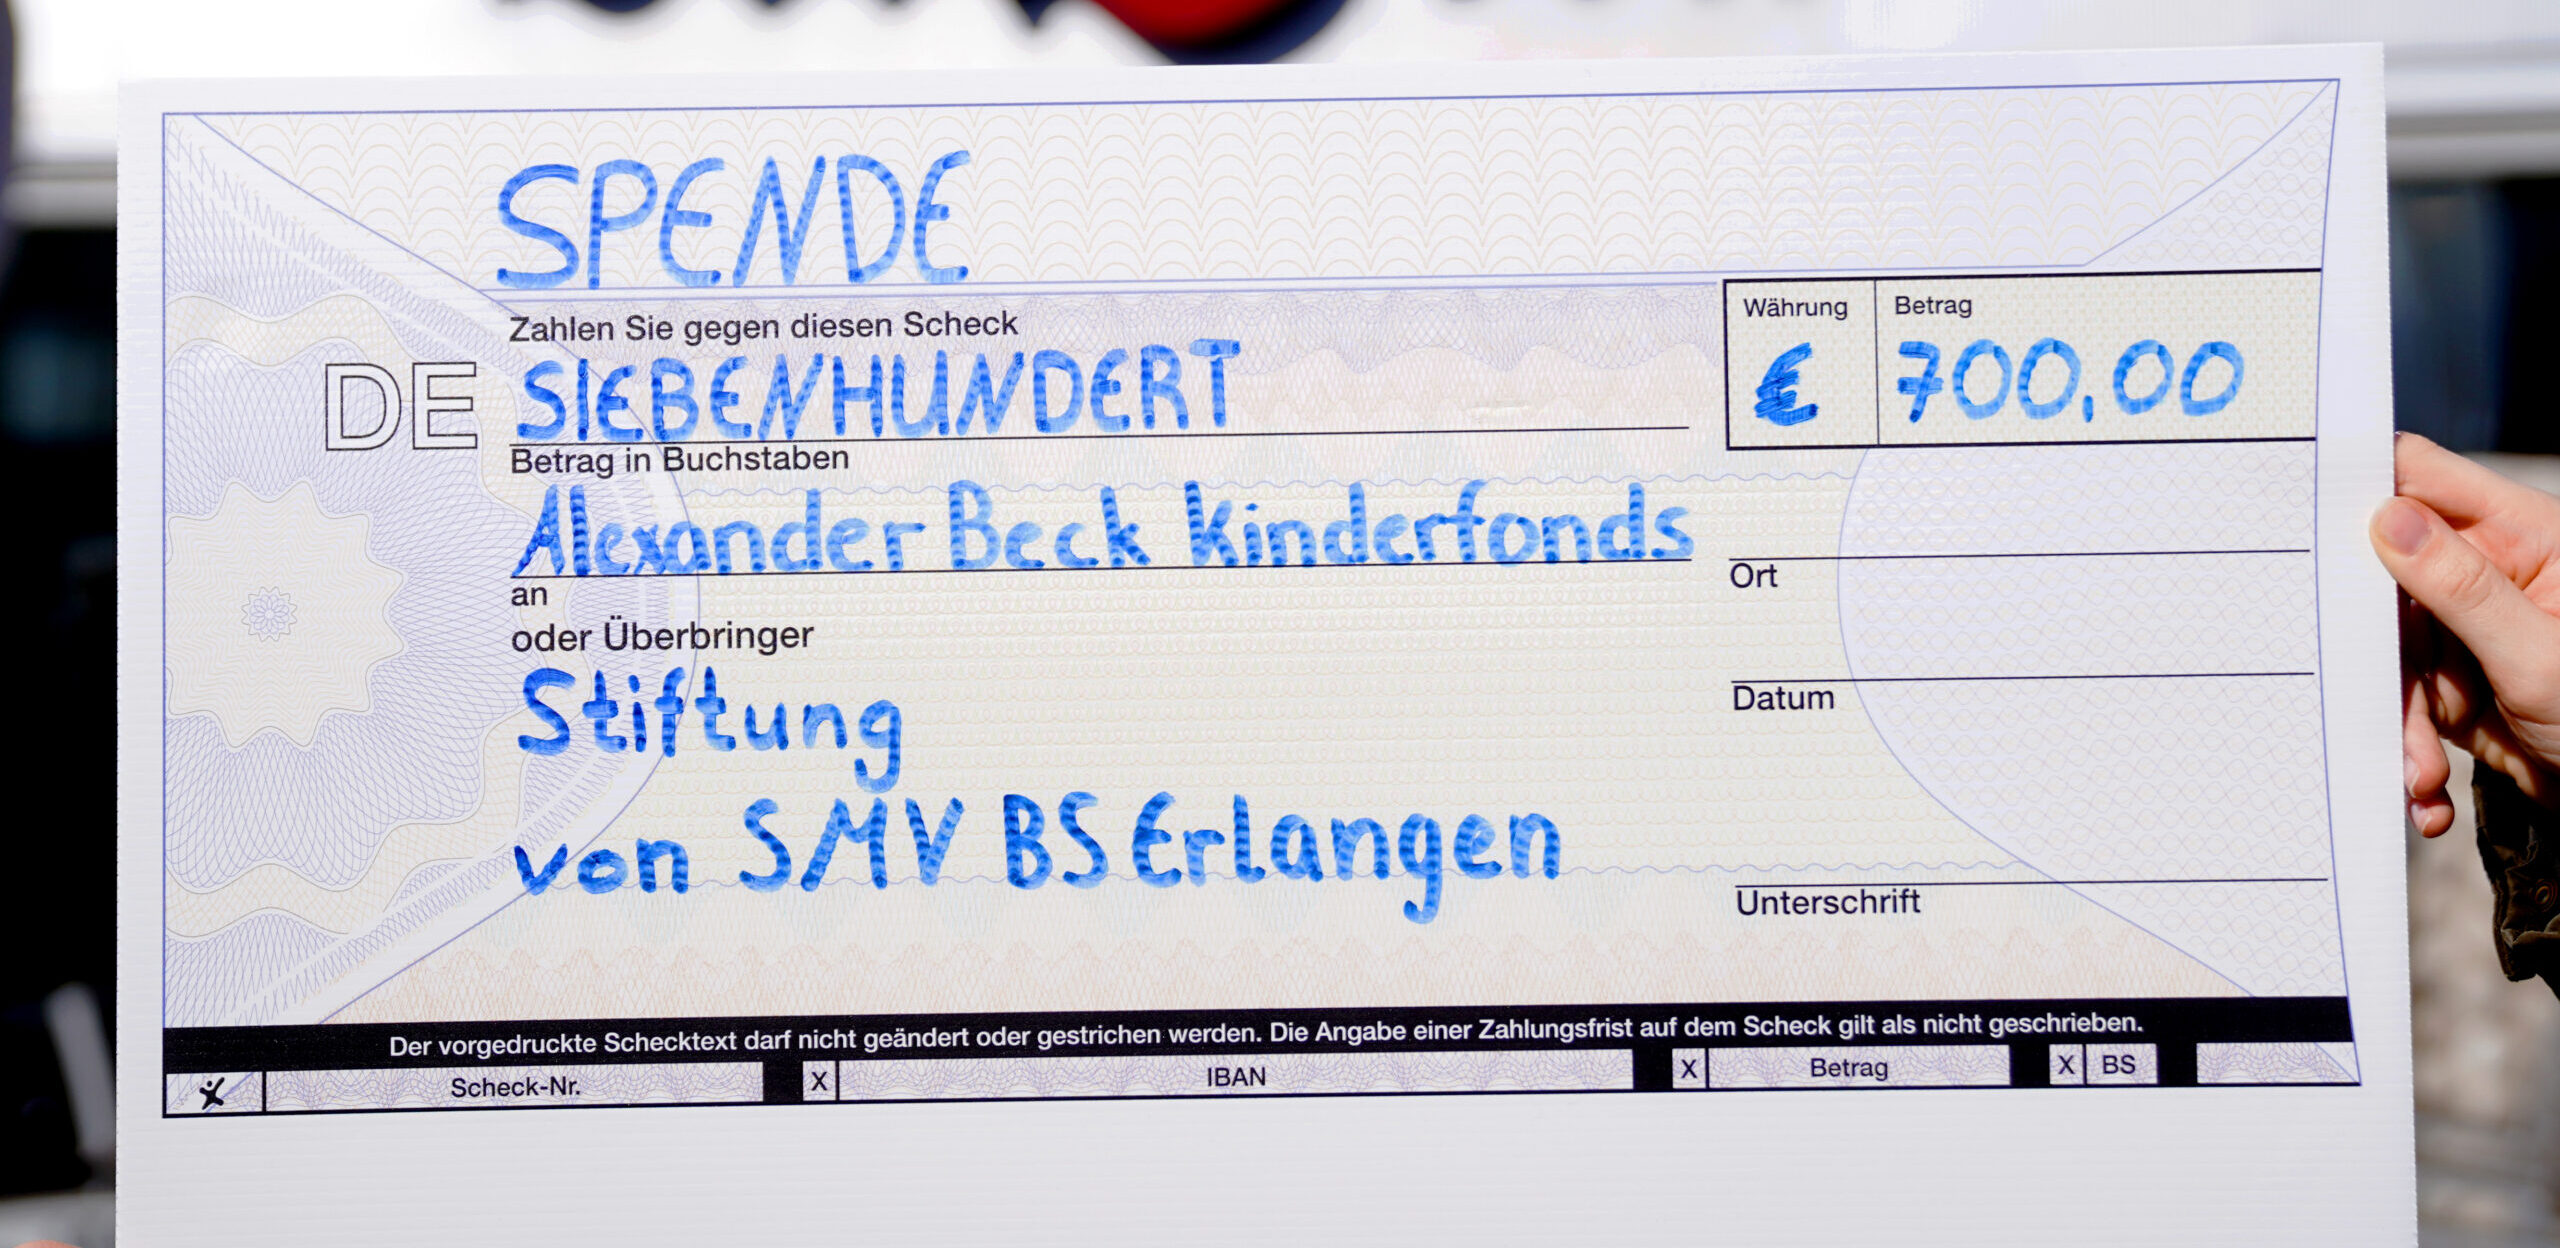 SPENDE
Zahlen Sie gegen diesen Scheck
Währung
Betrag
DE
SIEBENHUNDERT
€
700,00
Betrag in Buchstaben
Alexander Beck Kinderfonds
an
Ort
oder Überbringer
Stiftung
Datum
von SMV BS Erlangen
Unterschrift
Der vorgedruckte Schecktext darf nicht geändert oder gestrichen werden. Die Angabe einer Zahlungsfrist auf dem Scheck gilt als nicht geschrieben.
Scheck-Nr. X IBAN X Betrag X BS